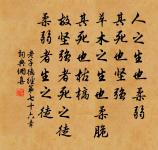 人之生也柔弱
其死也堅強
草木之生也柔脆
其死也枯槁
故堅強者死之徒
柔弱者生之徒
老子道德經第七十六章
詞典網